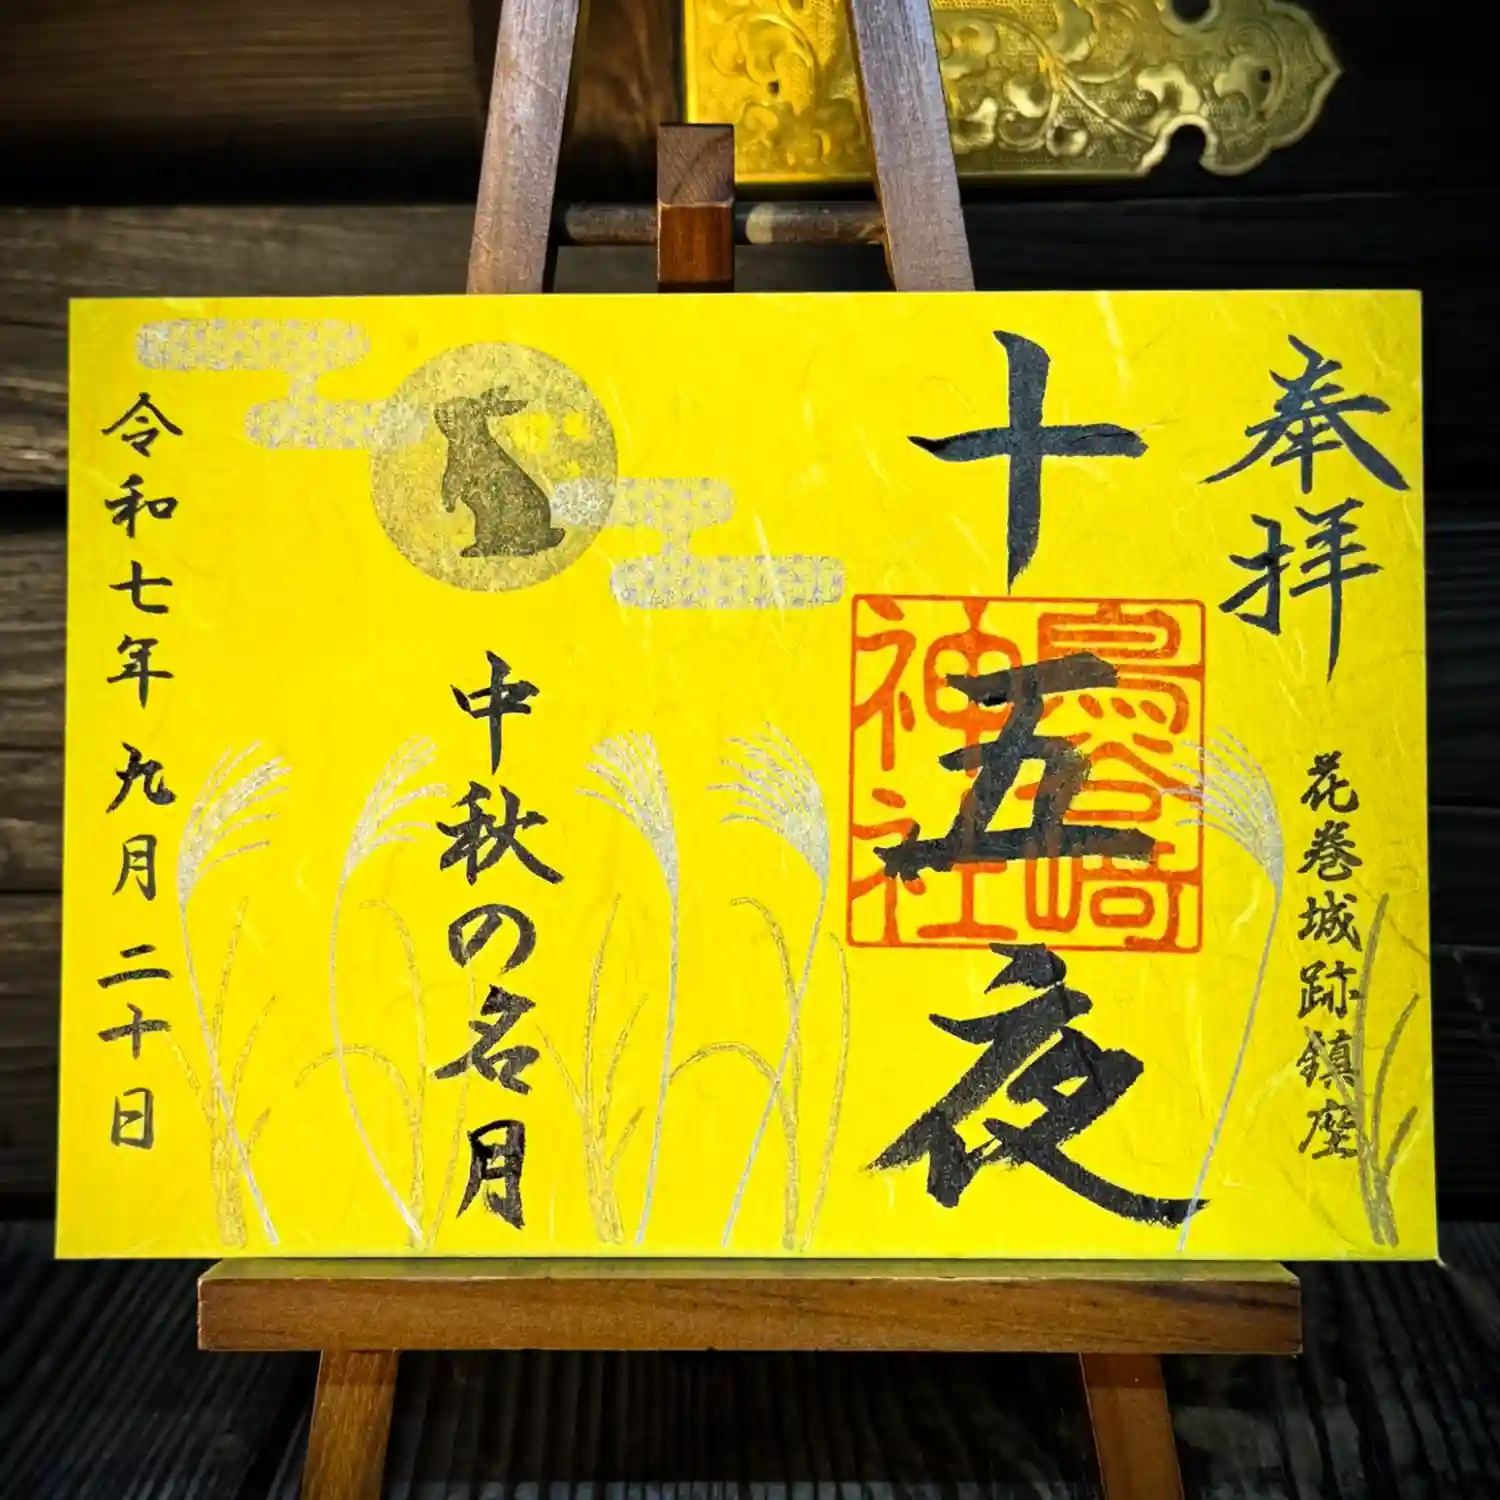 奉拝
花巻城跡鎮座
十五夜
鳥谷崎
神社
中秋の名月
令和七年九月二十日